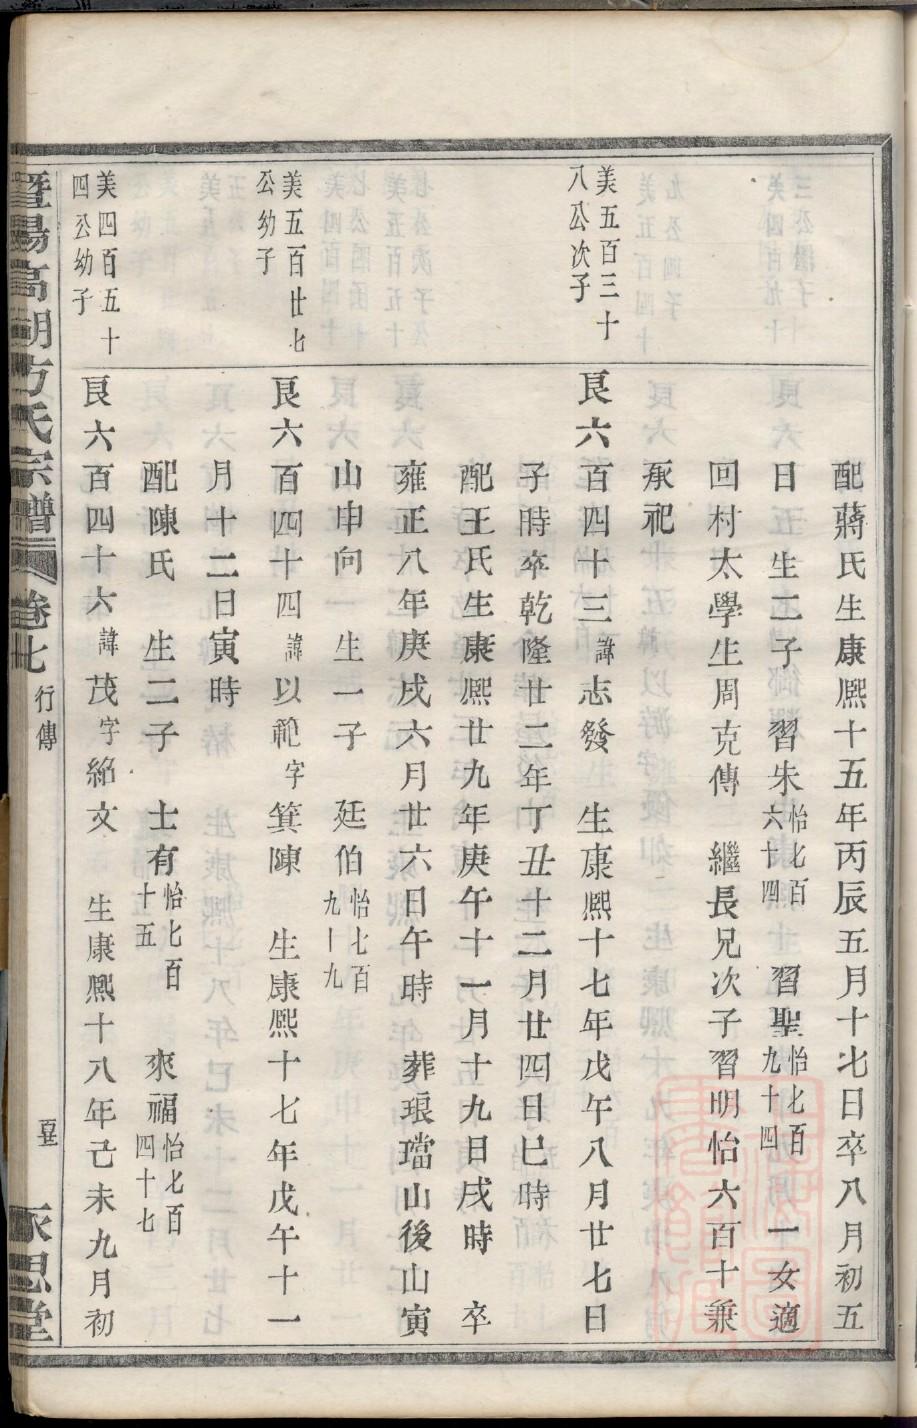 配蔣氏生康熙十五年丙辰五月十七日卒八月初五
日 生二子 習朱怡七百六十四 習聖怡七百九十四 一女適
回村太學生周克傳 繼長兄次子習明怡六百十兼
承祀
美五百三十
八公次子
艮六百四十三諱志發 生康熙十七年戊午八月廿七日
子時卒乾隆廿二年丁丑十二月廿四日巳時
配王氏生康熙廿九年庚午十一月十九日戌時 卒
雍正八年庚戌六月廿六日午時 葬琅璫山後山寅
山申向 生一子 廷伯怡七百九十九
美五百廿七
公幼子
艮六百四十四諱以範字箕陳 生康熙十七年戊午十一
月十二日寅時
配陳氏 生二子 士有怡七百十五 來福怡七百四十七
美四百五十
四公幼子
艮六百四十六諱茂字紹文 生康熙十八年己未九月初
暨陽高湖方氏宗譜 卷七 行傳 永思堂